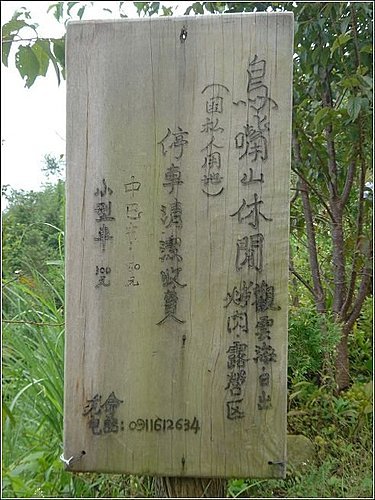 鳥嘴山休閒
觀雲海·日出
烤肉露營區
(因私人用地)
停車清潔收費
中巴車:
元
小型車:100元
電話:0911612634